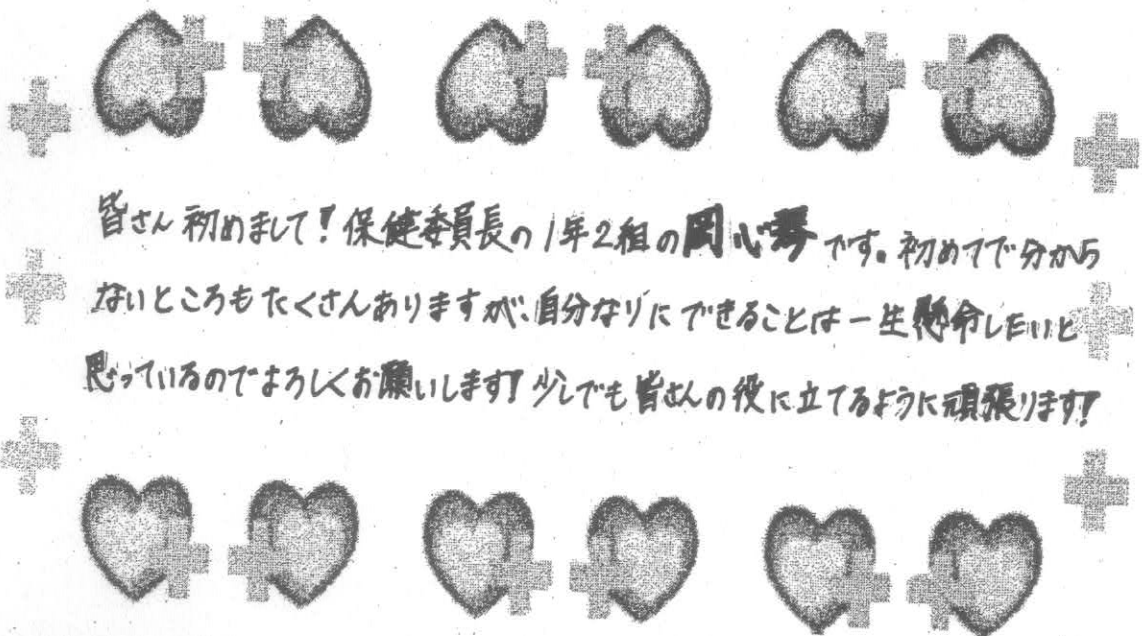 皆さん初めまして!保健委員長の1年2組の岡心琴です。初めてで分から
ないところもたくさんありますが、自分なりにできることは一生懸命したいと
思っているのでよろしくお願いします!少しでも皆さんの役に立てるように頑張ります!